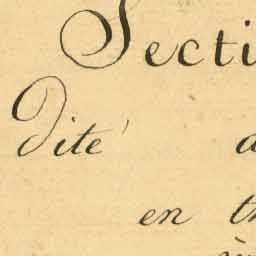 Secti
Dité a
en th